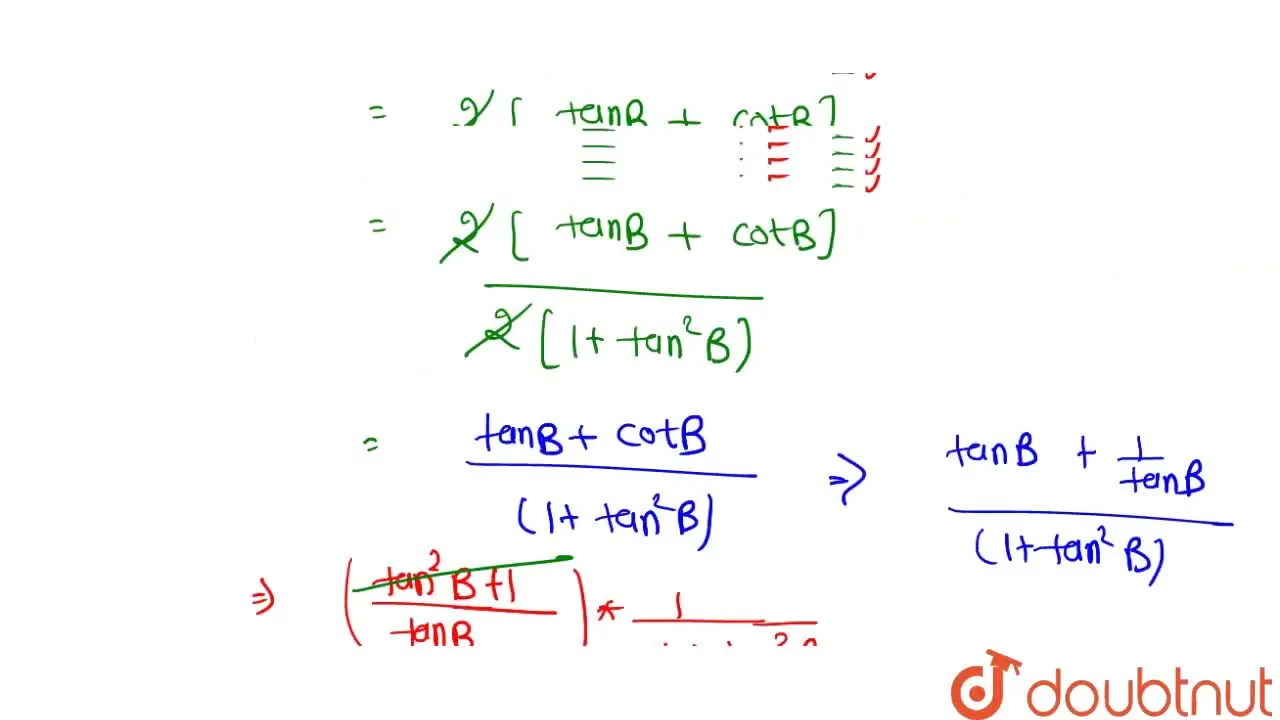 = 2 [ tanB + cotB ]
= 2 [ tanB + cotB ]
2 [ 1 + tan² B )
= tanB + cotB
(1 + tan² B)
⇒ tanB + 1
tanB
(1 + tan² B)
⇒ ( tan² B + 1
tanB ) * 1
doubtnut